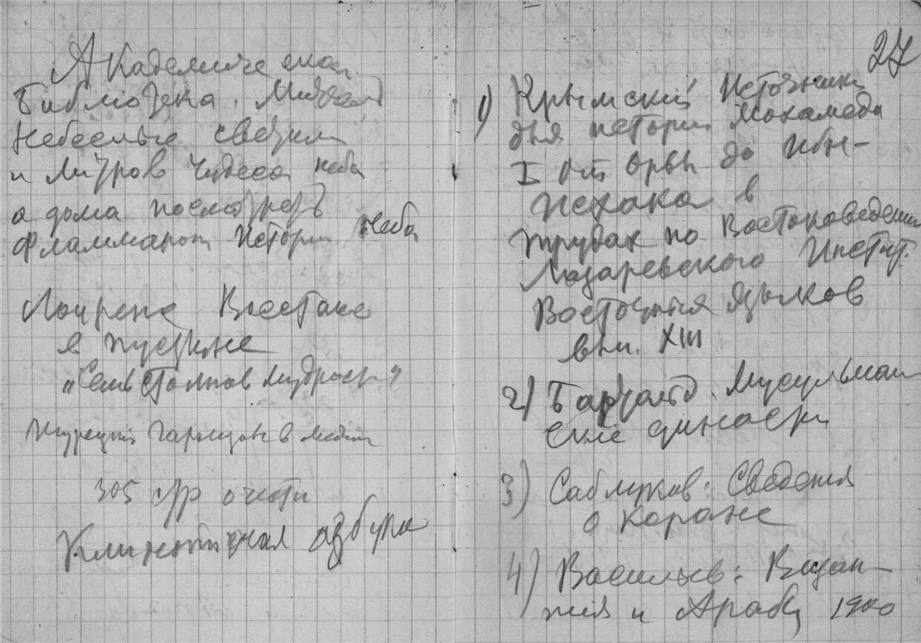 Академическая
Библиотека.
Небесные светила
и Митров Чудеса неба
а дома посмотреть
Фламмарион История Неба
Лоуренс Восстание
в пустыне
„Семь столпов мудрости"
Турецкий гарнизон в Медине
305 стр
Клинопичная азбука
27
1) Крымский Источники
для истории Мохамеда
I От Орвы до Ибн-
Исхака в
трудах по Востоковедению
Лазаревского Инстит.
Восточных языков
вып. XIII
2) Бартольд. Мусульман
ские династии
3) Саблуков: Сведения
о коране
4) Васильев: Визан-
тия и Арабы 1900